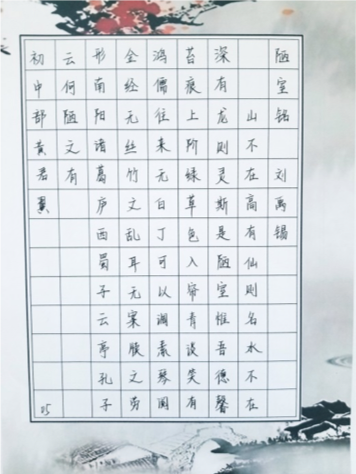 陋室铭 刘禹锡
山不在高有仙则名水不在
深有龙则灵斯是陋室惟吾德馨
苔痕上阶绿草色入帘青谈笑有
鸿儒往来无白丁可以调素琴阅
金经无丝竹之乱耳无案牍之劳
形南阳诸葛庐西蜀子云亭孔子
云何陋之有
初中部黄君